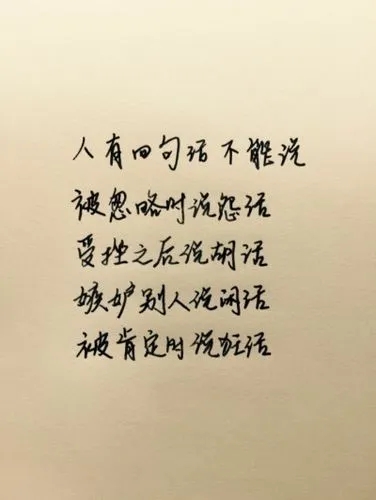 人有四句话不能说
被忽略时说怨话
受挫之后说胡话
嫉妒别人说闲话
被肯定时说狂话